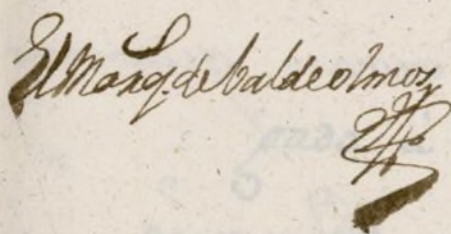 El Marq.s de Valdeolmos